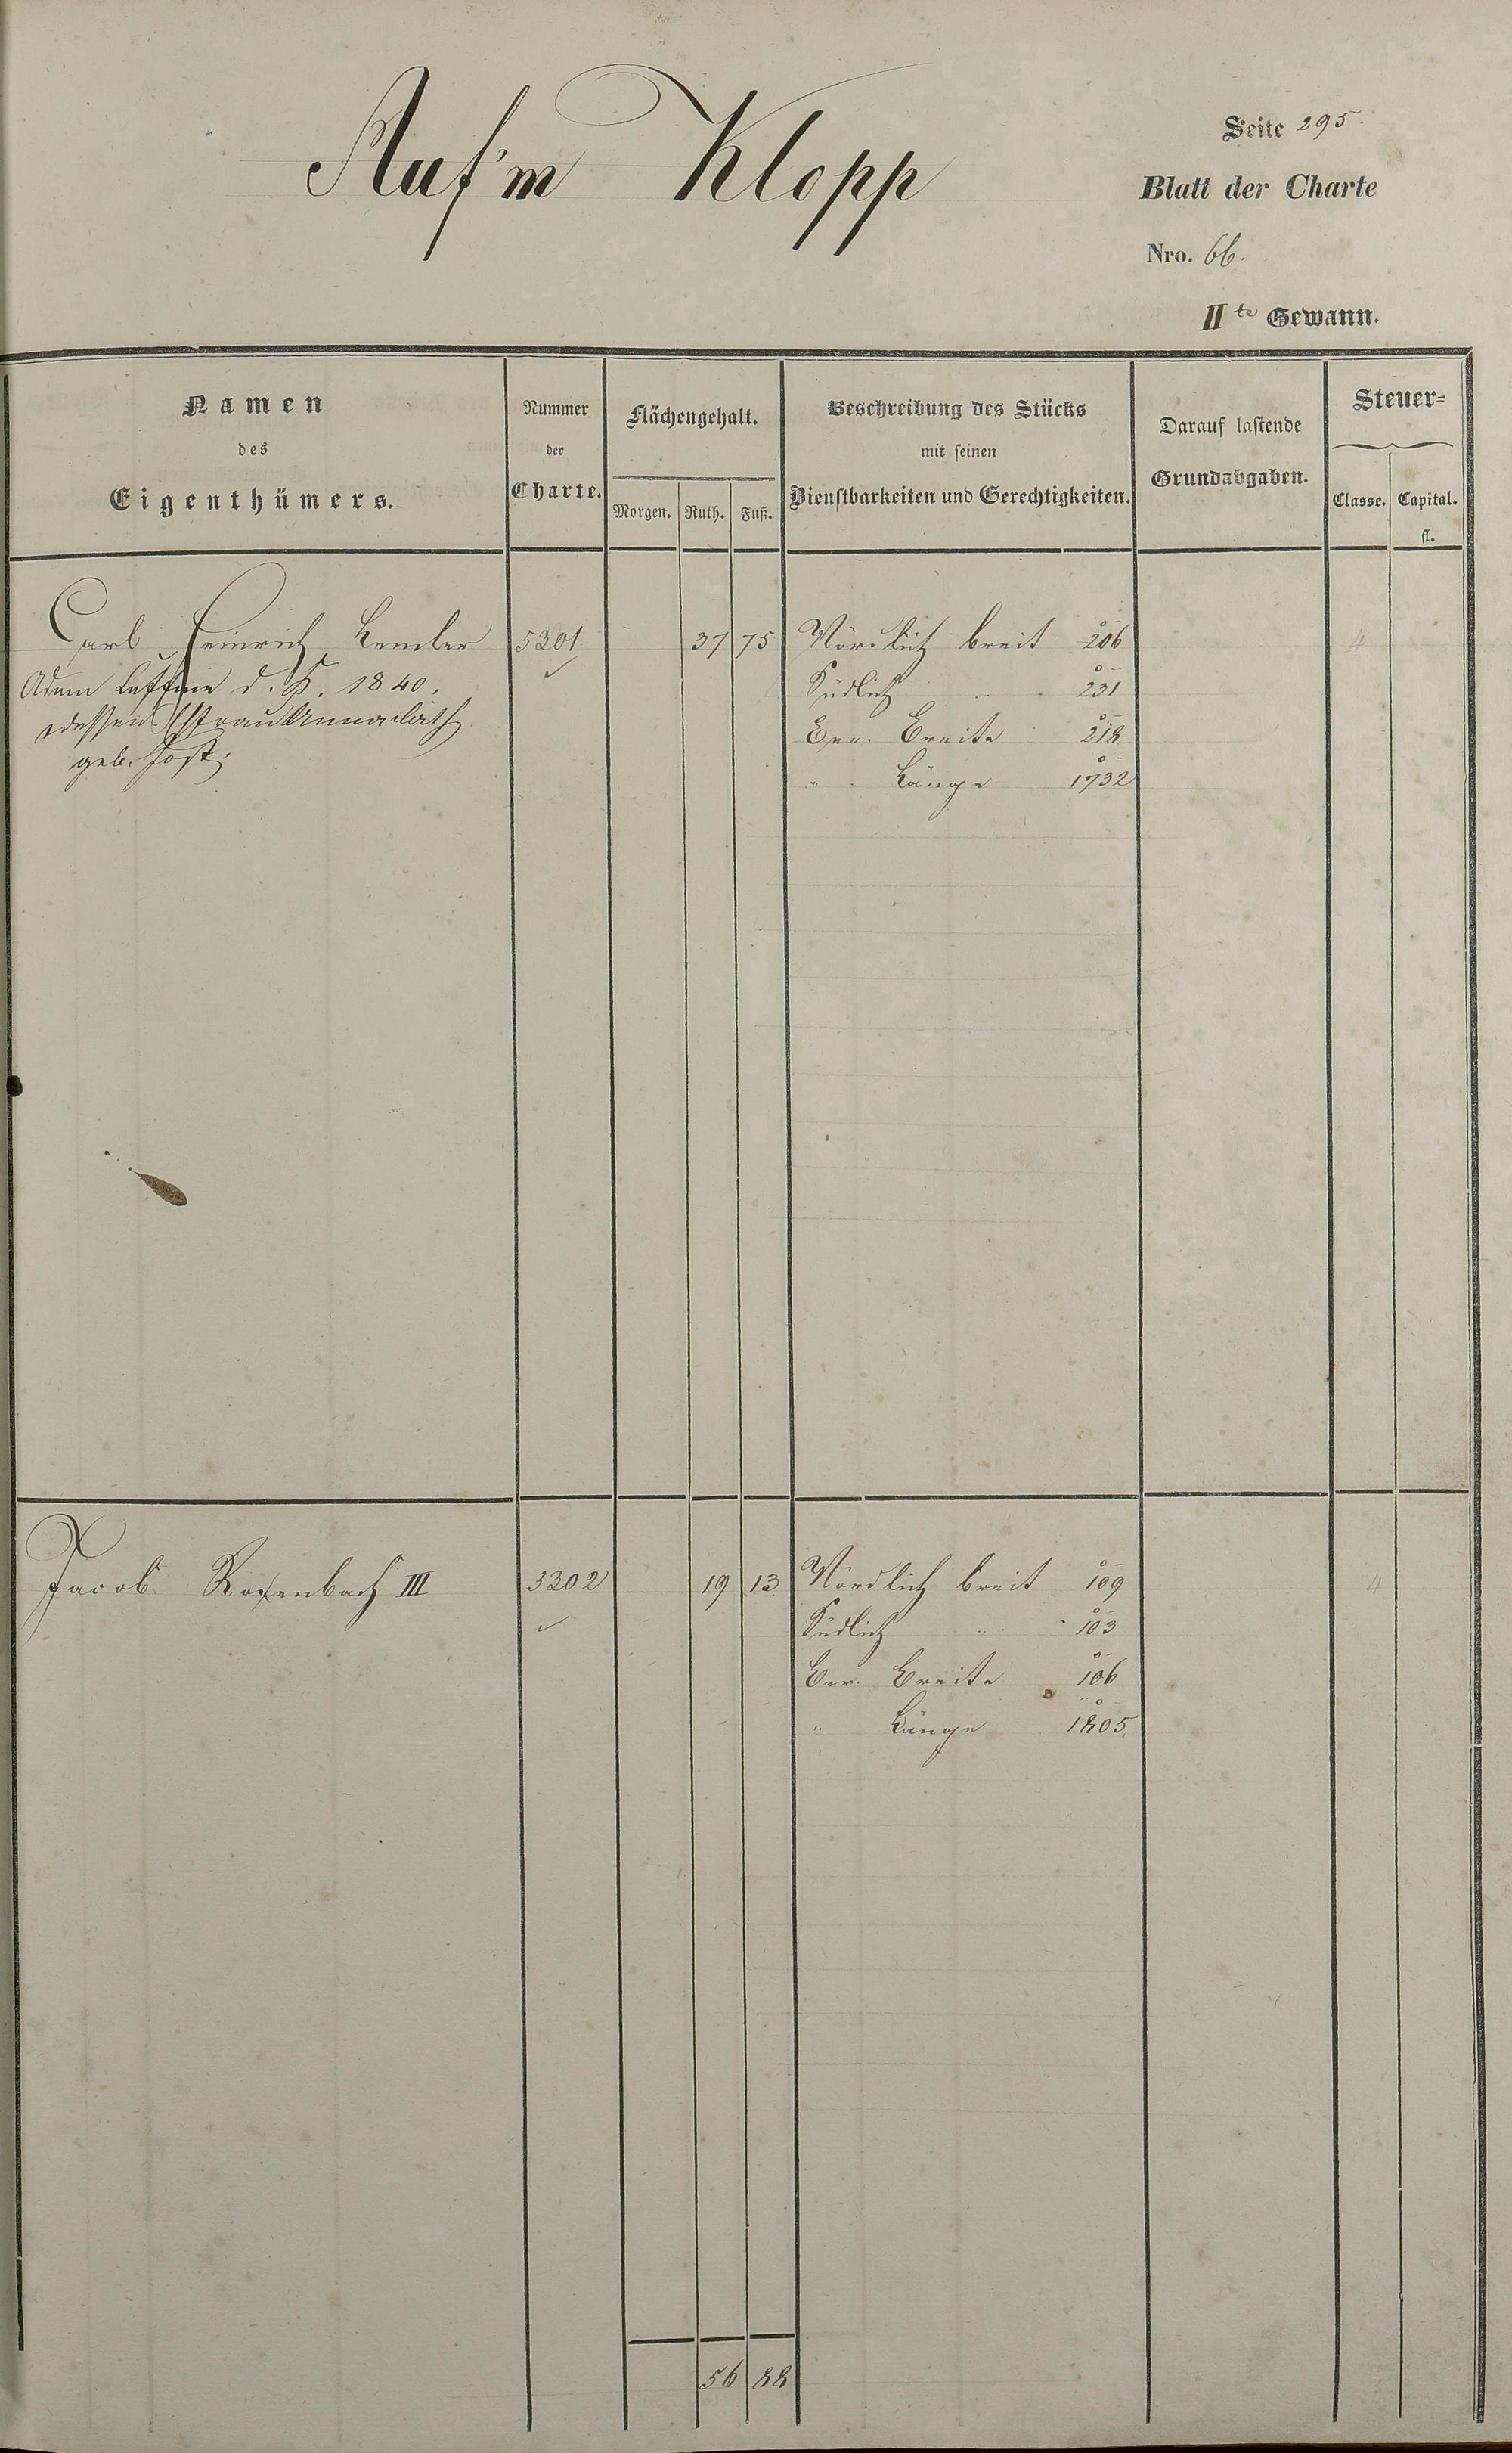 Auf'm Klopp
Seite 295
Blatt der Charte
Nro. 66.
IIte Gewann.
Namen
des
Eigenthümers.
Nummer
der
Charte.
Flächengehalt.
Morgen. Ruth. Fuß.
Beschreibung des Stücks
mit seinen
Dienstbarkeiten und Gerechtigkeiten.
Darauf lastende
Grundabgaben.
Steuer=
Classe. Capital.
fl.
Carl Heinrich Kemler 5301 37 75 Nördlich breit 206 4
Adam d. K. 1840. Südlich " 231
dessen Ehefrau Ber. Breite 218
geb. Jost. " Länge 1732
Jacob Rosenbach III 5302 19 13 Nördlich breit 109 4
Südlich " 103
Ber. Breite 106
" Länge 1805
56 88